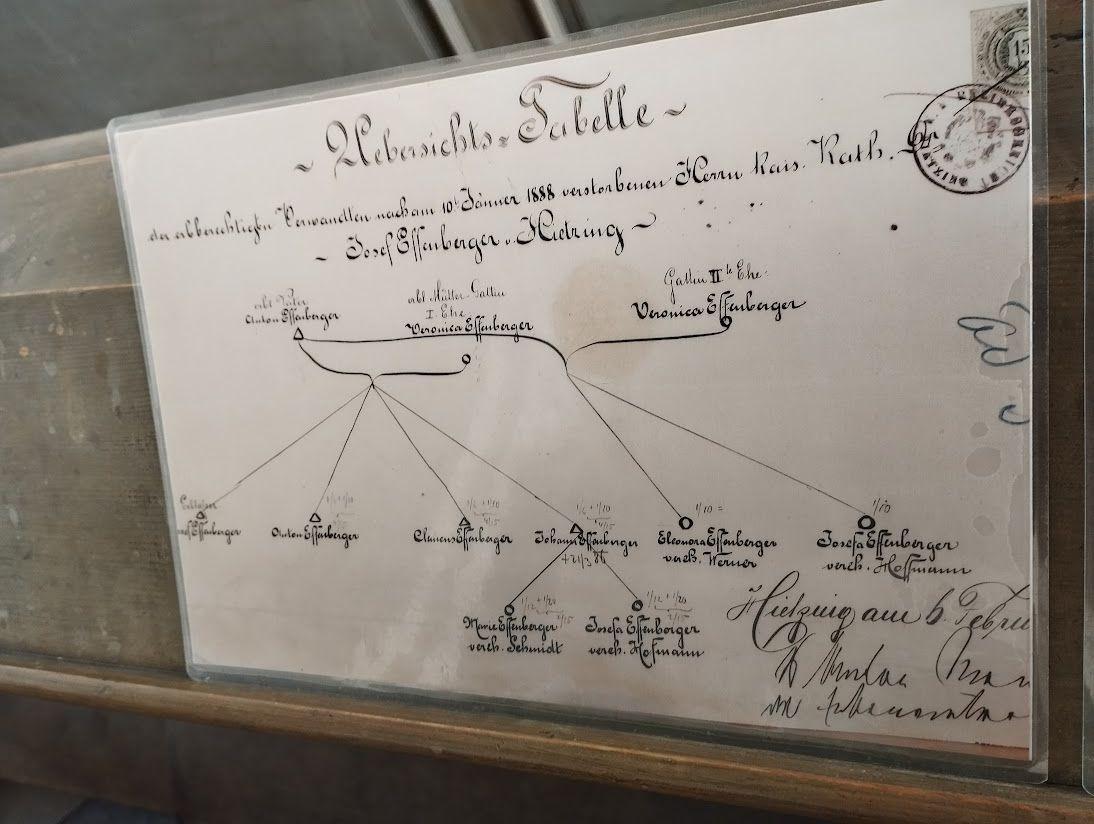 ~ Uebersichts-Tabelle ~
der erbberechtigten Verwandten nach am 10t Jänner 1888 verstorbenen Herrn kais. Rath.
~ Josef Effenberger v. Hietzing ~
erbl. Vater
Anton Effenberger
erbl. Mutter Gattin
I. Ehe
Veronica Effenberger
Gattin IIte Ehe
Veronica Effenberger
Erblasser
Effenberger
Anton Effenberger
1/6 + 1/10
Clemens Effenberger
1/6 + 1/10
4/15
Johann Effenberger
+ 21/3 86
1/10 =
Eleonora Effenberger
vereh. Werner
1/10
Josefa Effenberger
vereh. Hoffmann
1/12 + 1/20
2/15
Marie Effenberger
vereh. Schmidt
1/12 + 1/20
2/15
Josefa Effenberger
vereh. Hofmann
Hietzing am 6. Febru
15